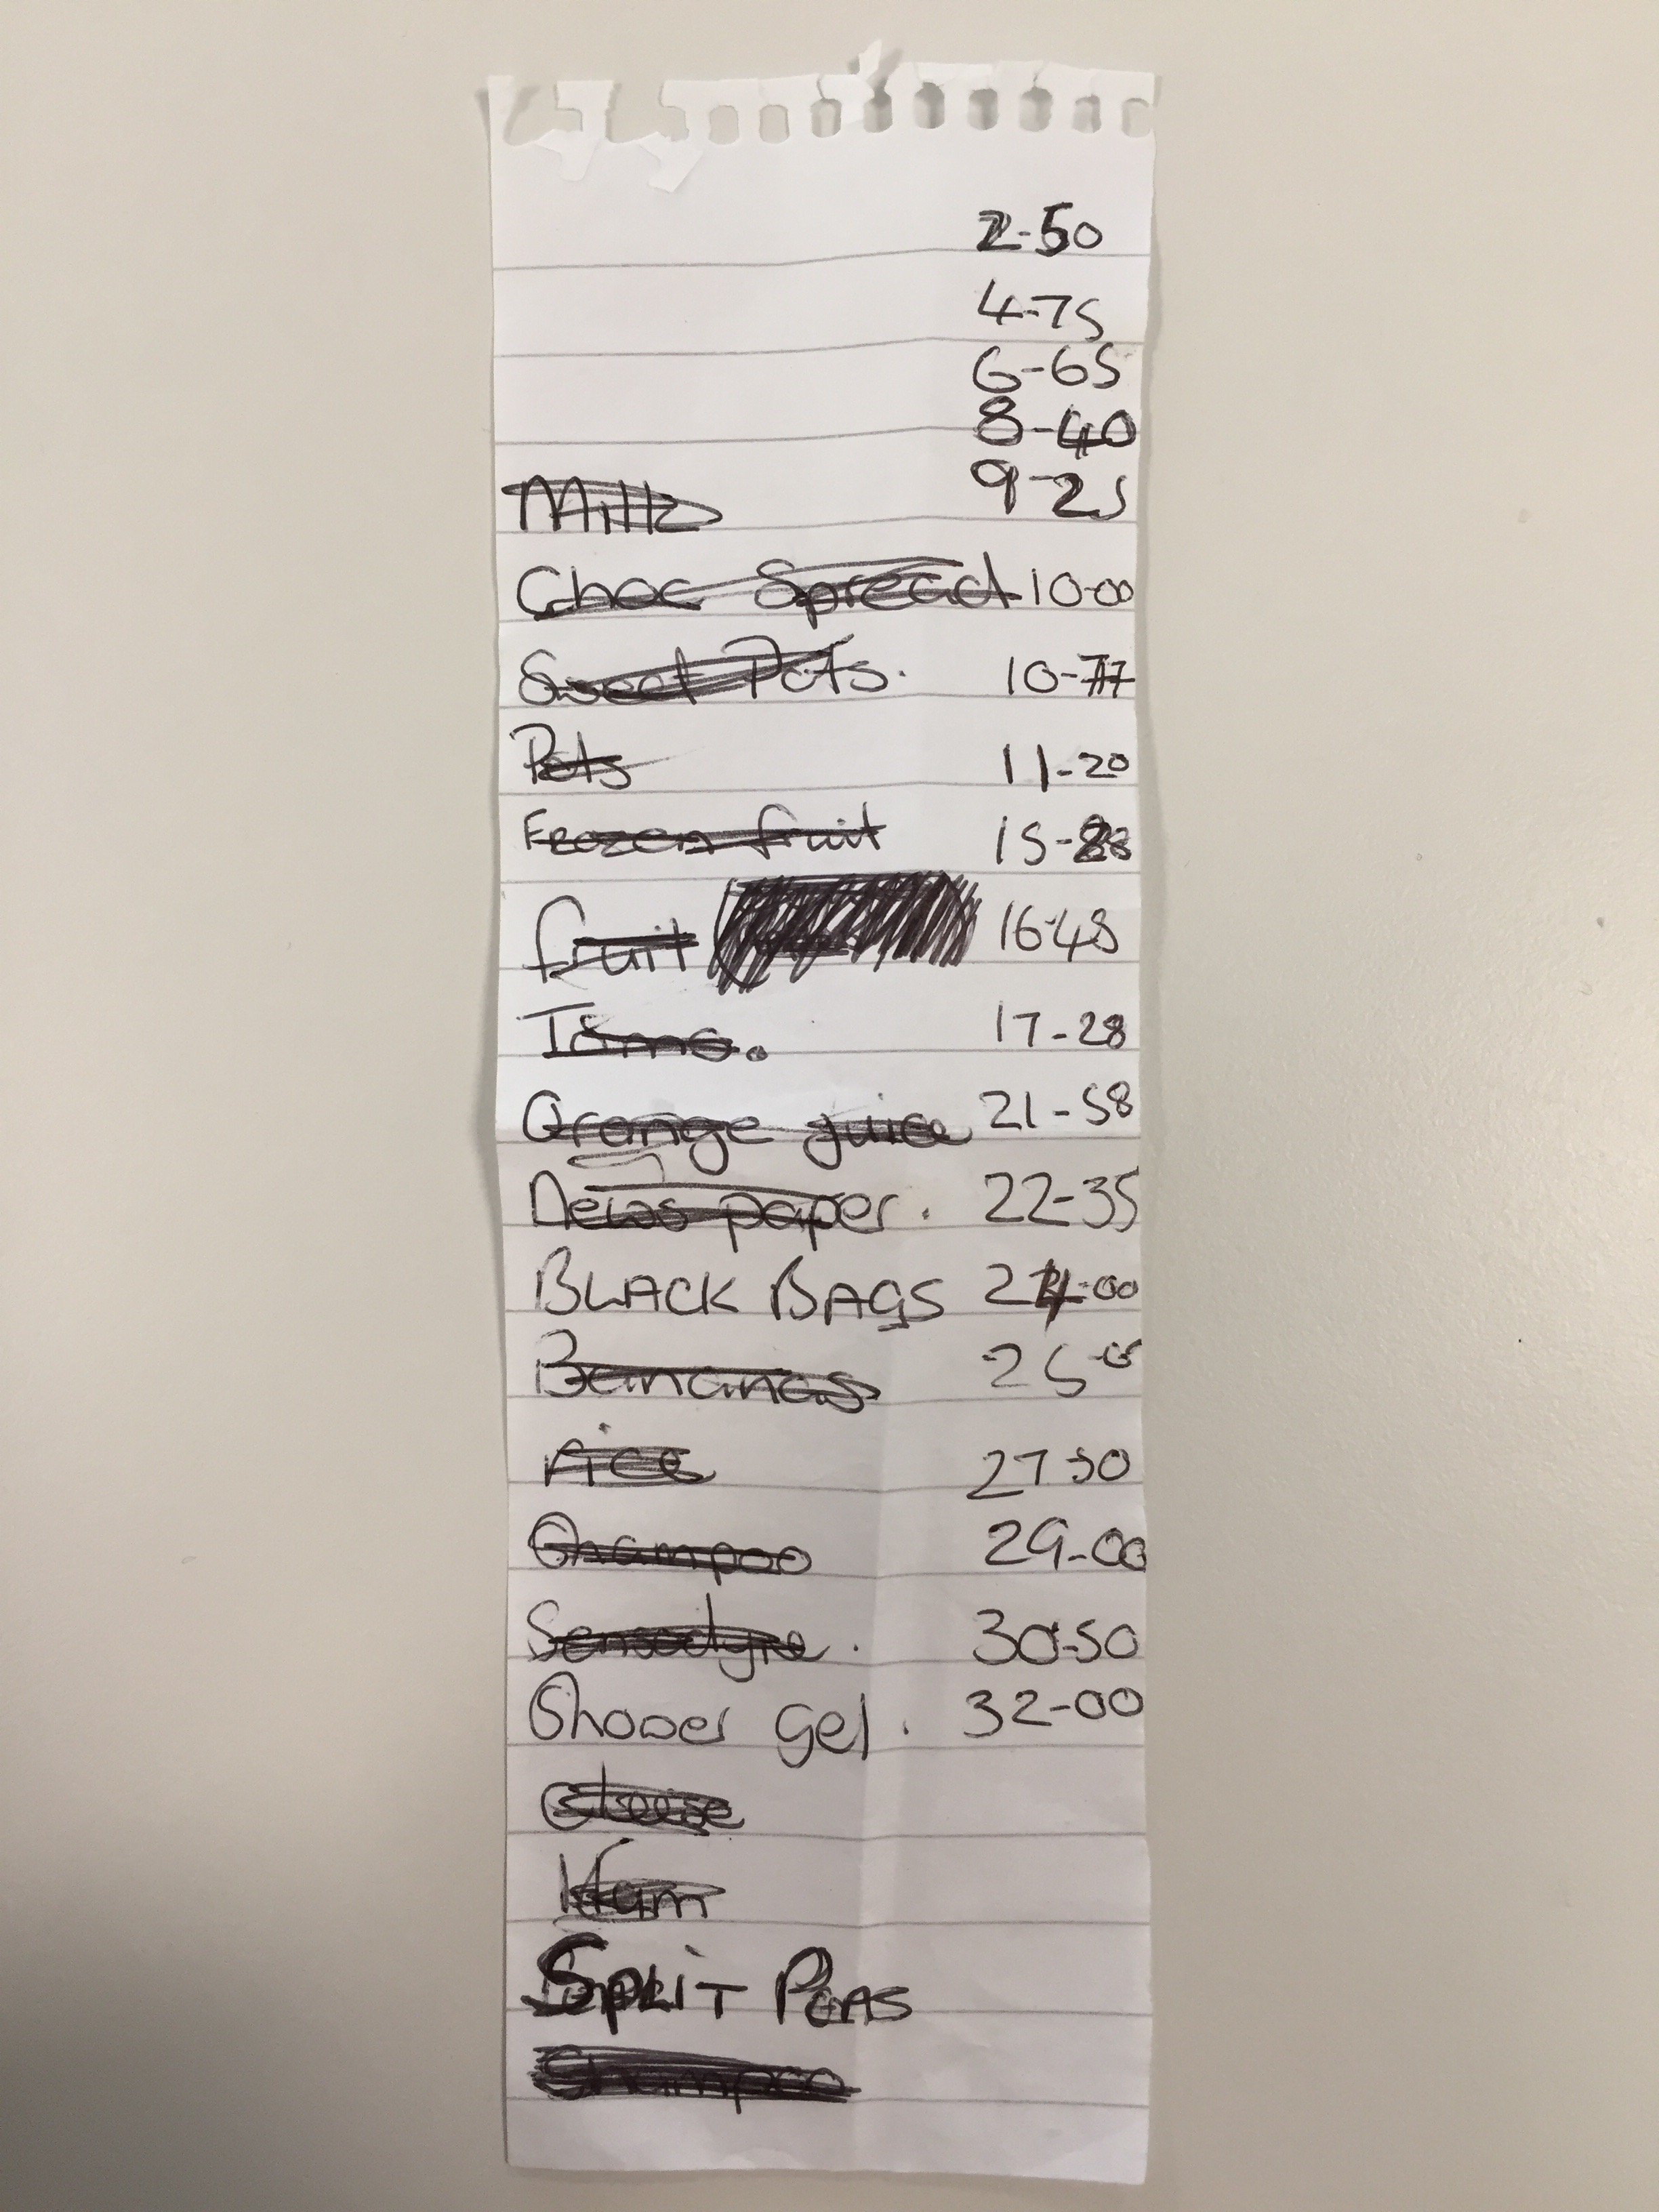 2-50
4-75
6-65
8-40
9-25
Milk
Choc Spread 10-00
Sweet Pots. 10-77
Pots 11-20
Frozen fruit 15-88
fruit 16-48
Toms. 17-28
Orange juice 21-58
Newspaper. 22-35
BLACK BAGS 24-00
Bananas 25
rice 27-50
Shampoo 29-00
Sensodyne. 30-50
Shower gel. 32-00
Cheese
Ham
SPLIT PEAS
Shampoo